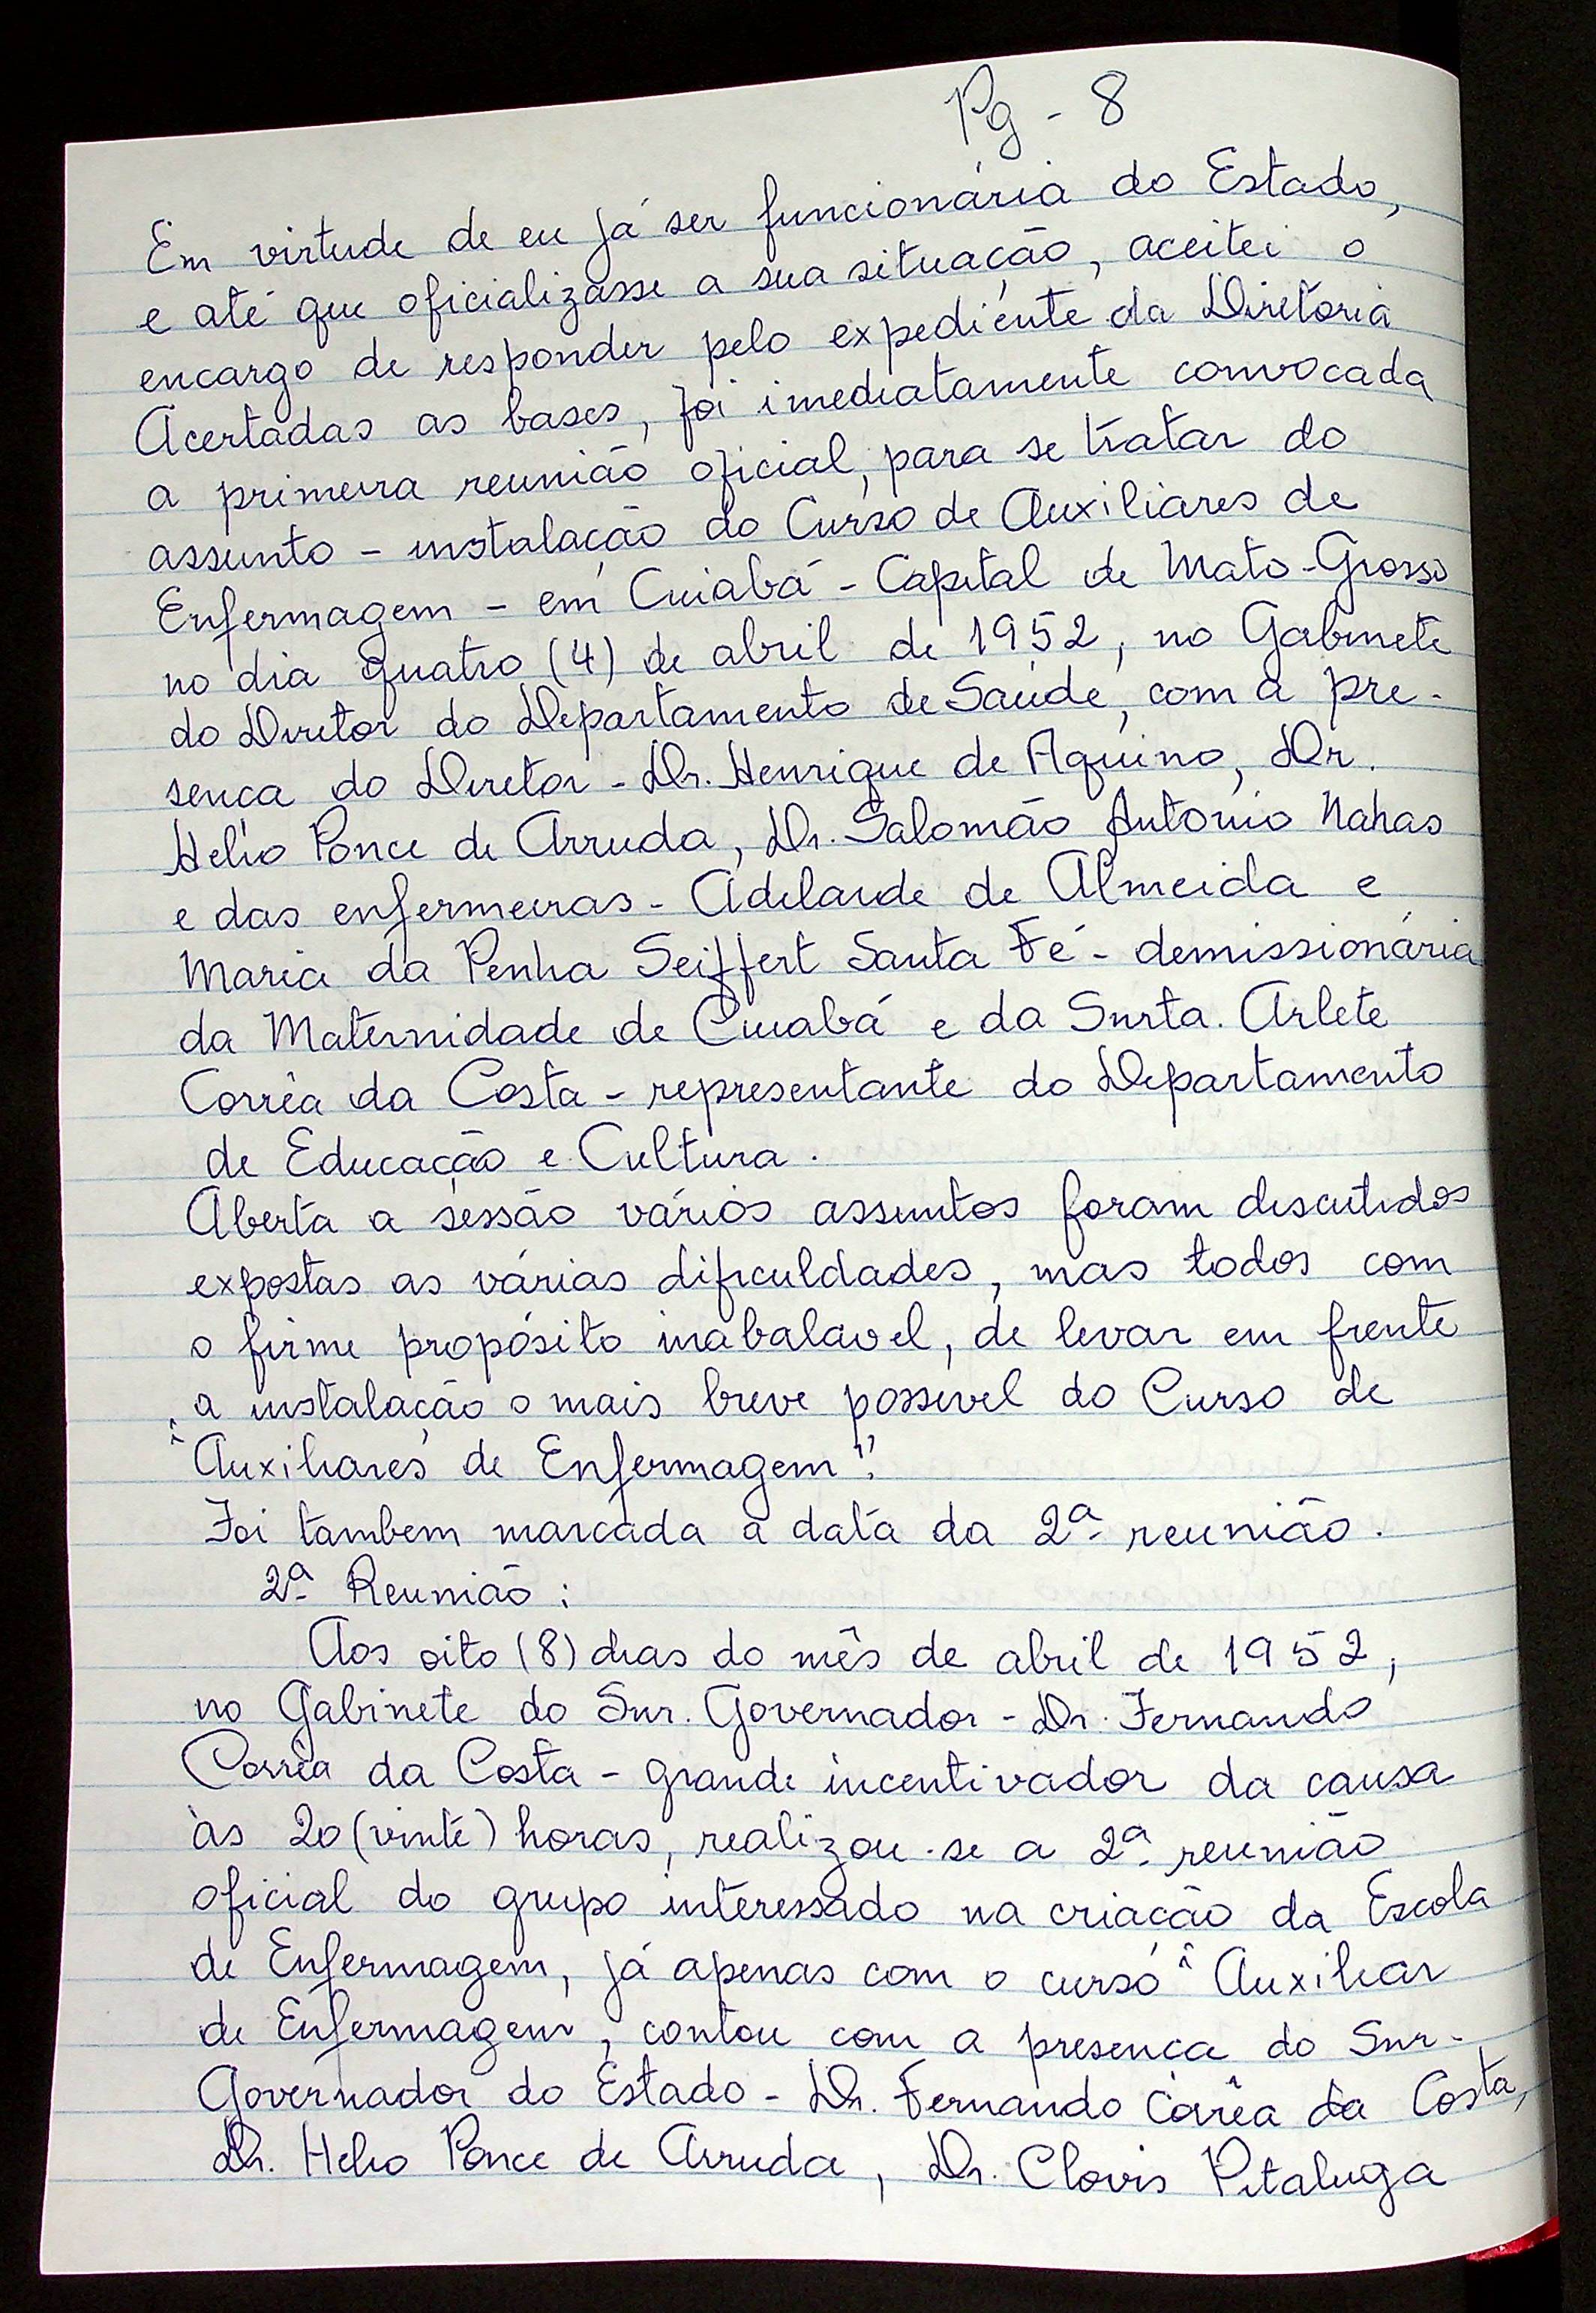 Pg - 8
Em virtude de eu já ser funcionária do Estado,
e até que oficializasse a sua situação, aceitei o
encargo de responder pelo expediente da Diretoria
Acertadas as bases, foi imediatamente convocada
a primeira reunião oficial, para se tratar do
assunto - instalação do Curso de Auxiliares de
Enfermagem - em Cuiabá - Capital de Mato-Grosso
no dia quatro (4) de abril de 1952, no Gabinete
do Diretor do Departamento de Saúde, com a pre-
sença do Diretor - Dr. Henrique de Aquino, Dr.
Helio Ponce de Arruda, Dr. Salomão Antonio Nahas
e das enfermeiras - Adelaide de Almeida e
Maria da Penha Seiffert Santa Fé - demissionária
da Maternidade de Cuiabá e da Snrta. Arlete
Corrêa da Costa - representante do Departamento
de Educação e Cultura.
Aberta a sessão vários assuntos foram discutidos
expostas as várias dificuldades, mas todos com
o firme propósito inabalavel, de levar em frente
a instalação o mais breve possivel do Curso de
"Auxiliares de Enfermagem".
Foi tambem marcada a data da 2ª reunião.
2ª Reunião:
Aos oito (8) dias do mês de abril de 1952,
no Gabinete do Snr. Governador - Dr. Fernando
Corrêa da Costa - grande incentivador da causa
às 20 (vinte) horas, realizou-se a 2ª reunião
oficial do grupo interessado na criação da Escola
de Enfermagem, já apenas com o curso "Auxiliar
de Enfermagem, contou com a presença do Snr.
Governador do Estado - Dr. Fernando Corrêa da Costa,
Dr. Helio Ponce de Arruda, Dr. Clovis Pitaluga